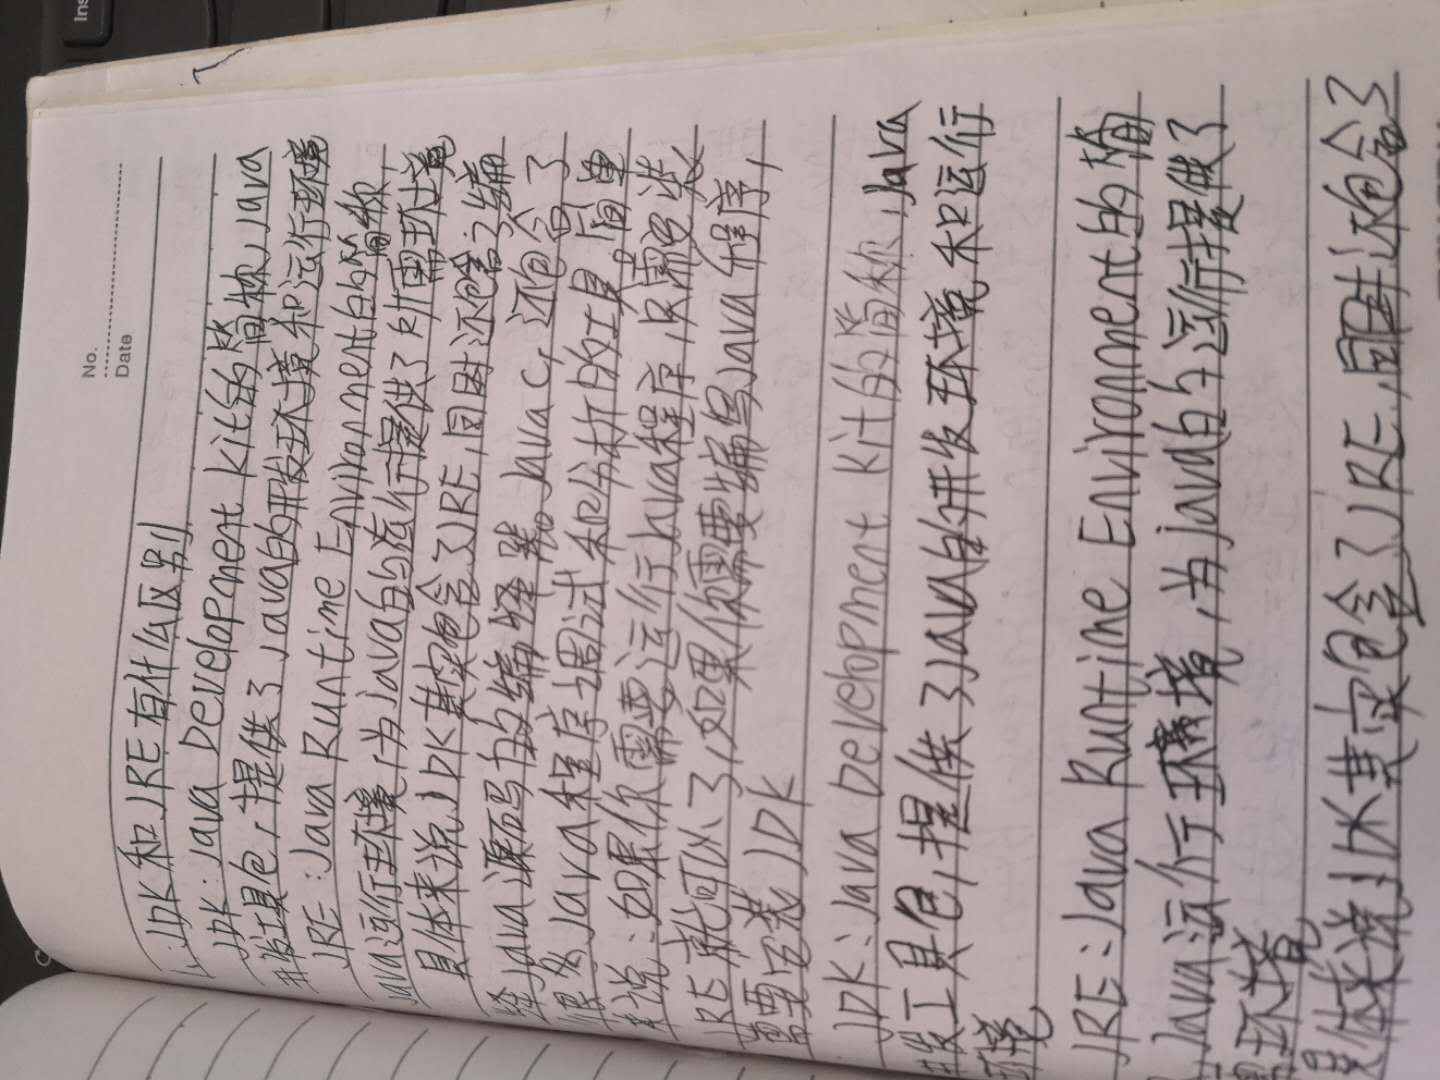 No.
Date
1、JDK和JRE有什么区别
JDK:Java Development Kit的简称,Java
开发工具包,提供了Java的开发环境和运行环境
JRE:Java Runtime Environment的简称,
Java运行环境,为Java的运行提供了所需环境
具体来说JDK其实包含了JRE,同时还包含了编
Java源码的编译器 Java C,还包含了
很多Java程序调试和分析的工具,简单
来说:如果你需要运行Java程序,只需要装
JRE就可以了,如果你需要编写Java程序,
需要安装JDK
JDK:Java Development Kit的简称,Java
开发工具包,提供了Java的开发环境和运行
环境
JRE:Java Runtime Environment的简
Java运行环境,为Java的运行提供了
需环境
具体来说JDK其实包含了JRE,同时还包含了
Ins